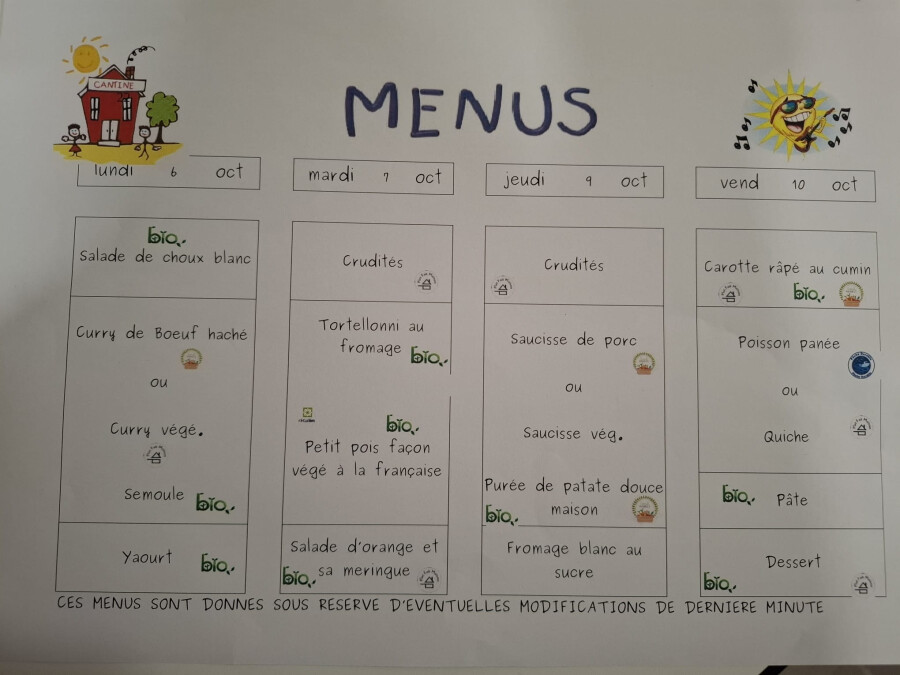 CANTINE
MENUS
lundi 6 oct
bio
Salade de choux blanc
Curry de Boeuf haché
ou
Curry végé.
Semoule bio
Yaourt bio
mardi 7 oct
Crudités
Tortellonni au
fromage bio
bio
Petit pois façon
végé à la française
Salade d'orange et
bio sa meringue
jeudi 9 oct
Crudités
Saucisse de porc
ou
Saucisse vég.
Purée de patate douce
bio maison
Fromage blanc au
sucre
vend 10 oct
Carotte râpé au cumin
bio
Poisson panée
ou
Quiche
bio Pâte
Dessert
bio
CES MENUS SONT DONNES SOUS RESERVE D'EVENTUELLES MODIFICATIONS DE DERNIERE MINUTE